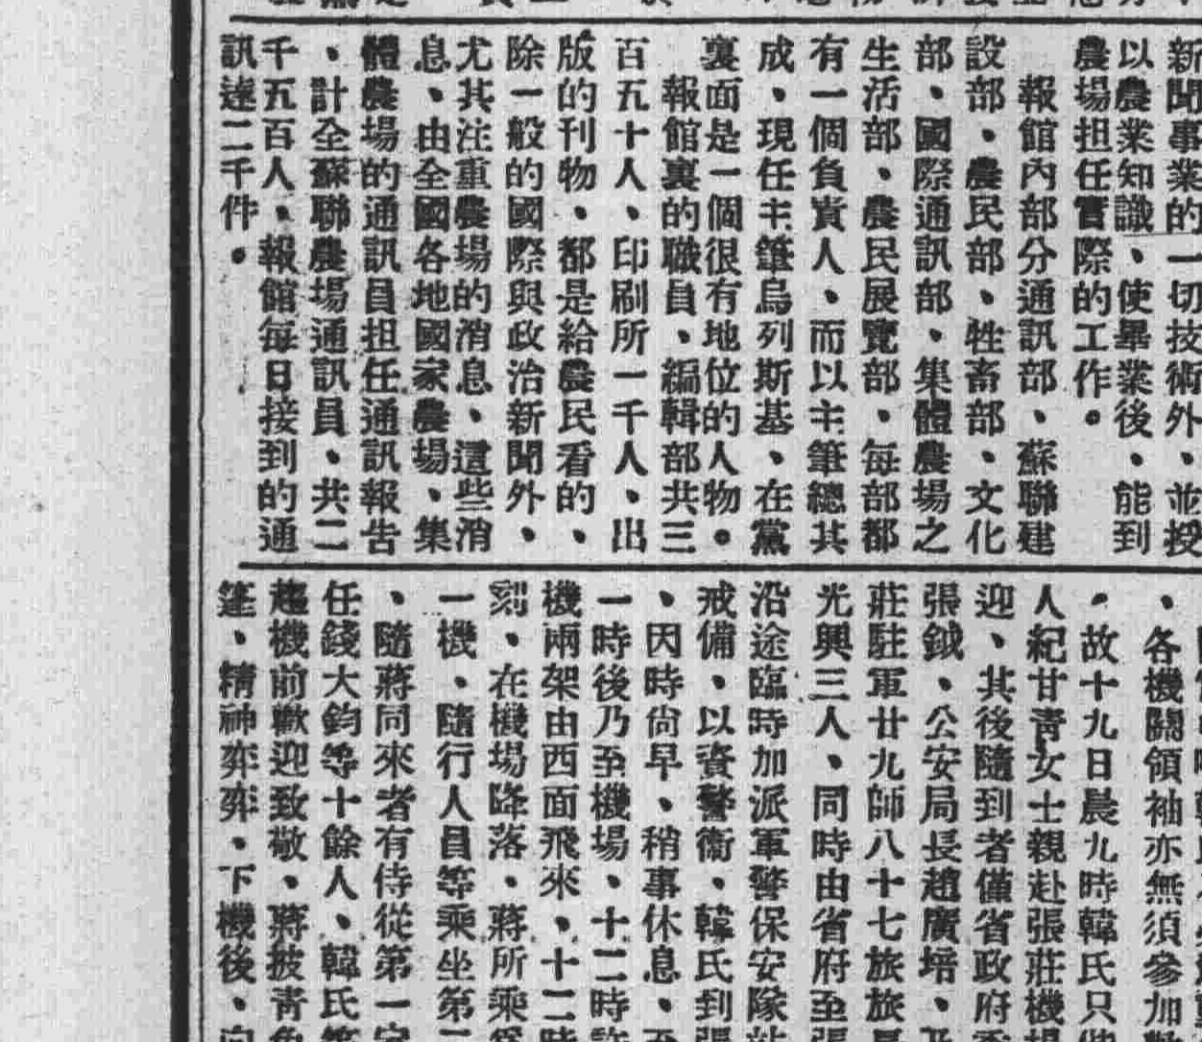 新聞事業的一切技術外、並授
以農業知識、使畢業後、能到
農場担任實際的工作。
報館內部分通訊部、蘇聯建
設部、農民部、牲畜部、文化
部、國際通訊部、集體農場之
生活部、農民展覽部、每部都
有一個負責人、而以主筆總其
成、現任主筆烏列斯基、在黨
裏面是一個很有地位的人物。
報館裏的職員、編輯部共三
百五十人、印刷所一千人、出
版的刊物、都是給農民看的、
除一般的國際與政治新聞外、
尤其注重農場的消息、這些消
息、由全國各地國家農場、集
體農場的通訊員担任通訊報告
、計全蘇聯農場通訊員、共二
千五百人、報館每日接到的通
訊達二千件。
、各機關領袖亦無須參加
、故十九日晨九時韓氏只
人紀甘青女士親赴張莊機場
迎、其後隨到者僅省政府
張鉞、公安局長趙廣培、
莊駐軍廿九師八十七旅旅
光興三人、同時由省府至張
沿途臨時加派軍警保安隊站
戒備、以資警衞、韓氏到張
、因時尙早、稍事休息、
一時後乃至機場、十二時許
機兩架由西面飛來、十二時
刻、在機場降落、蔣所乘
一機、隨行人員等乘坐第二
、隨蔣同來者有侍從第一室
任錢大鈞等十餘人、韓氏等
趨機前歡迎致敬、蔣披青色
篷、精神奕奕、下機後、向